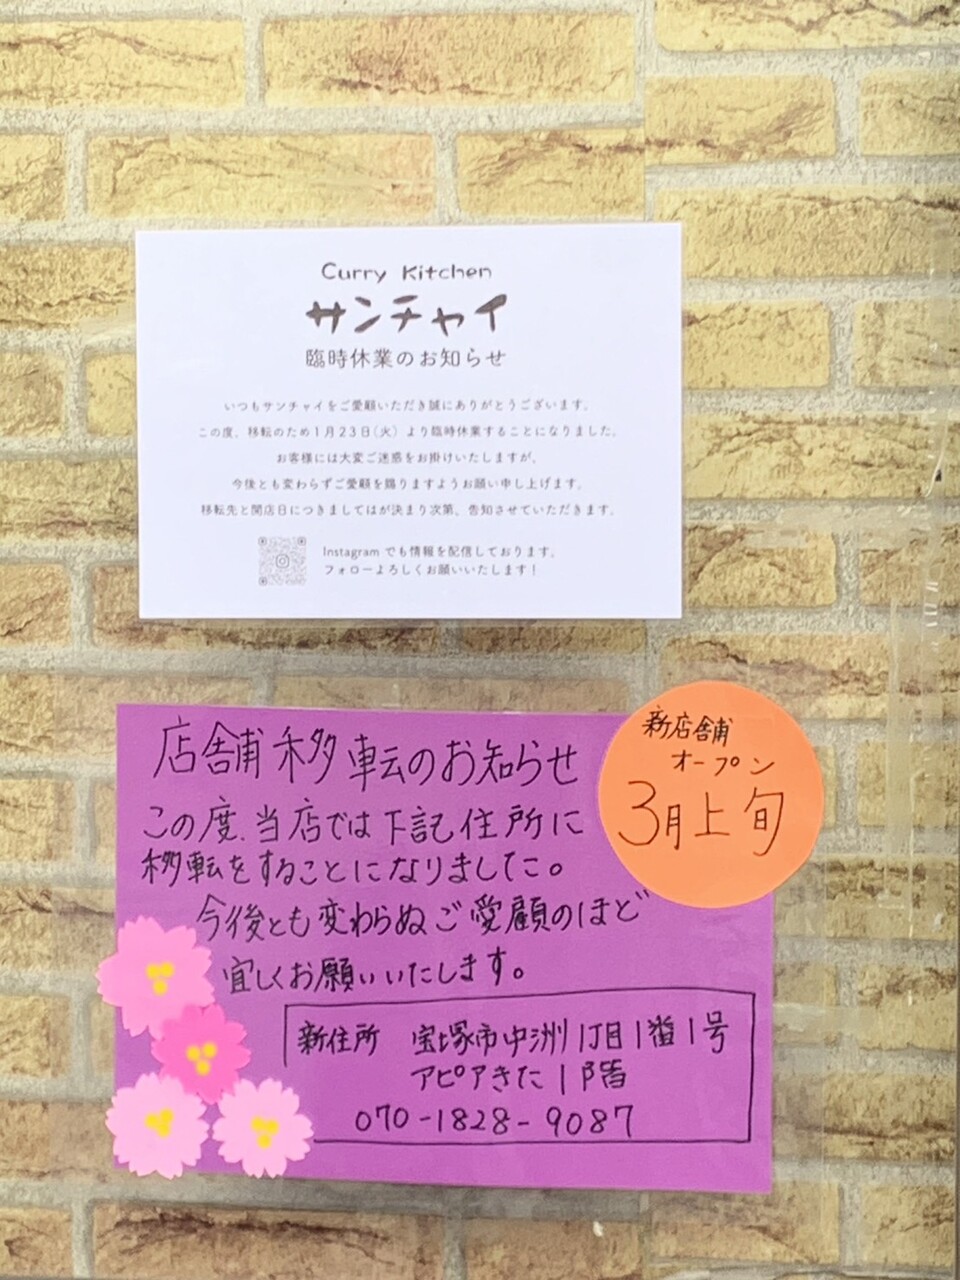 Curry Kitchen
サンチャイ
臨時休業のお知らせ
いつもサンチャイをご愛顧いただき誠にありがとうございます。
この度、移転のため1月23日(火)より臨時休業することになりました。
お客様には大変ご迷惑をお掛けいたしますが、
今後とも変わらずご愛顧を賜りますようお願い申し上げます。
移転先と開店日につきましてはが決まり次第、告知させていただきます。
Instagram でも情報を配信しております。
フォローよろしくお願いいたします！
新店舗
オープン
3月上旬
店舗移転のお知らせ
この度、当店では下記住所に
移転をすることになりました。
今後とも変わらぬご愛顧のほど
宜しくお願いいたします。
新住所 宝塚市中洲1丁目1番1号
アピアきた1階
070-1828-9087